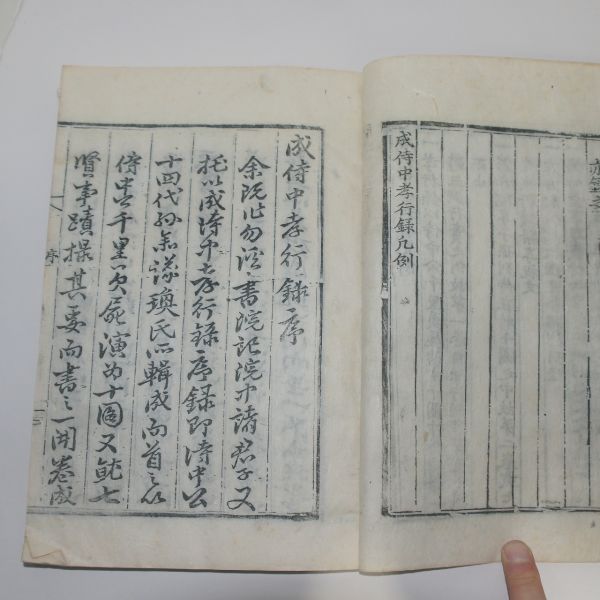 成侍中孝行録凡例
成侍中孝行録序
余既作勿溪書院記院中諸君子又
托以成侍中孝行録序録即侍中公
十四代孫瑍氏所輯成而首之以
侍中公千里負屍演為十圖又就七
賢事蹟撮其要而書之一開卷成
序